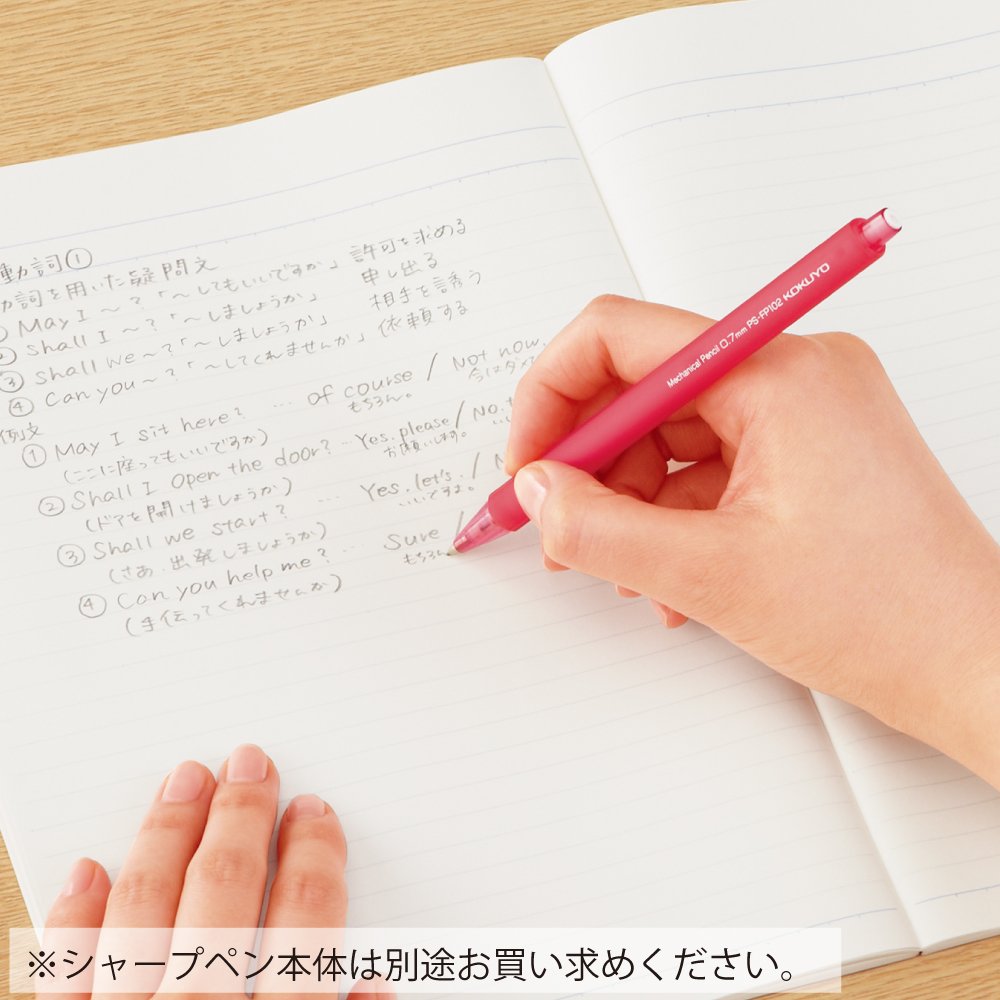 動詞①
動詞を用いた疑問文
May I ～？「～してもいいですか」 許可を求める
Shall I ～？「～しましょうか」 申し出る
③ Shall we ～？「～しましょうか」 相手を誘う
④ Can you ～？「～してくれませんか」 依頼する
例文
① May I sit here? … of course / Not now.
(ここに座ってもいいですか) もちろん。 今はダメ
② Shall I open the door? … Yes, please / No. t
(ドアを開けましょうか) お願いします。
③ Shall we start? … Yes, let's. / N
(さあ、出発しましょうか) いいですよ。
④ Can you help me? … Sure /
(手伝ってくれませんか) もちろん
Mechanical Pencil 0.7mm PS-FP102 KOKUYO
※シャープペン本体は別途お買い求めください。